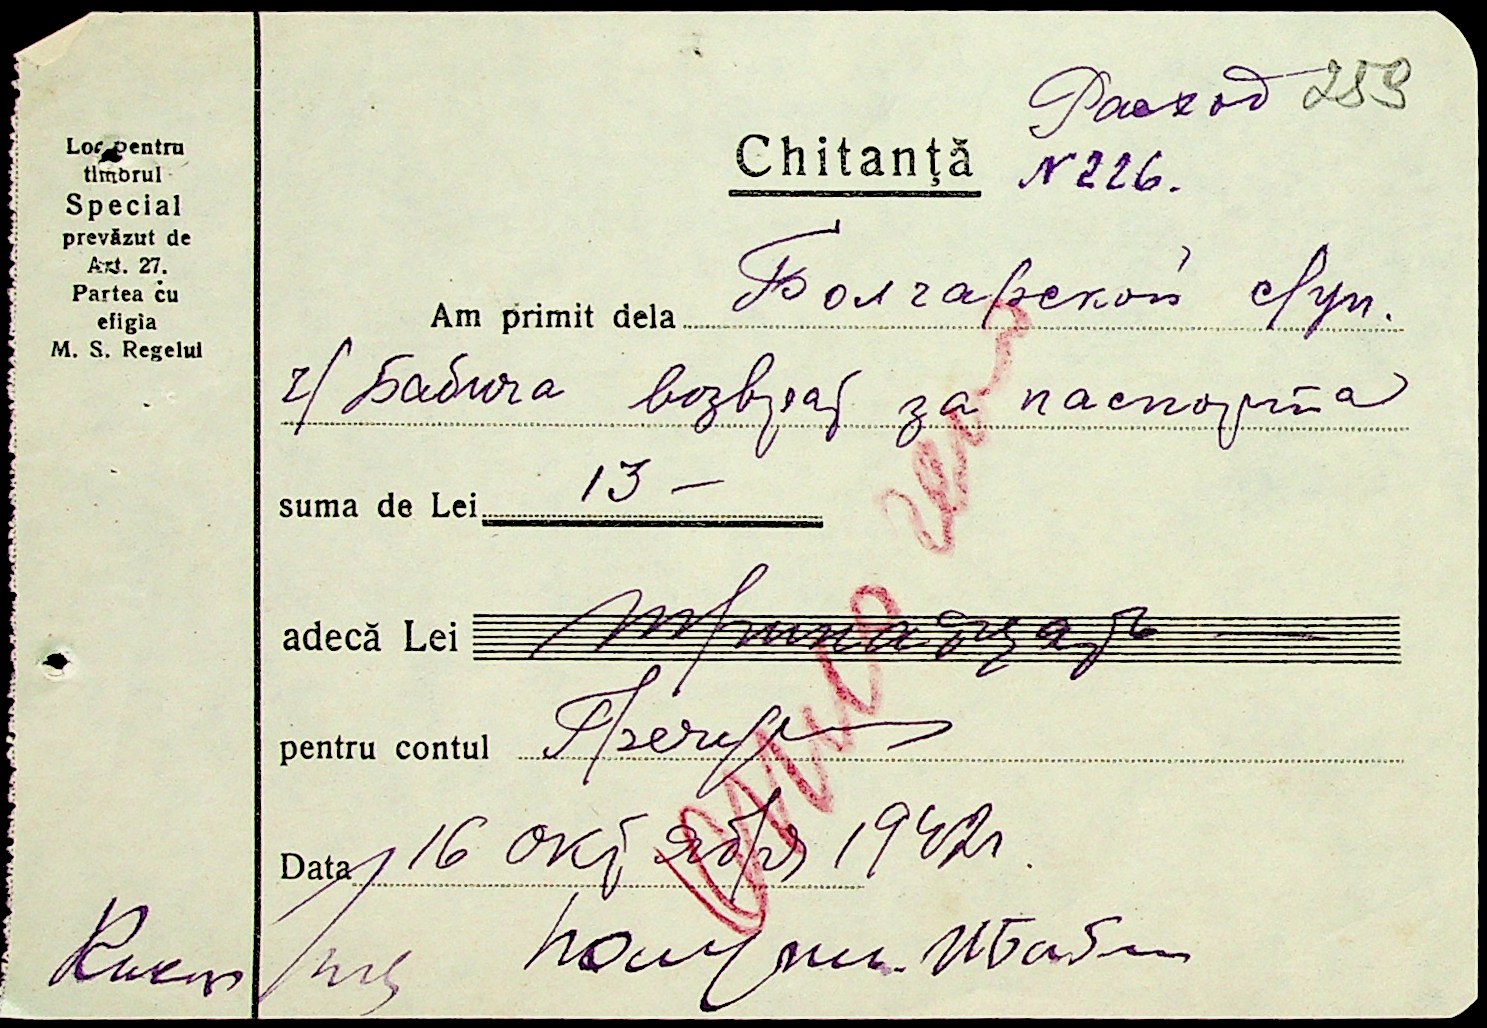 Loc pentru
timbrul
Special
prevăzut de
Art. 27.
Partea cu
efigia
M. S. Regelui
Расход 259
Chitanță
N 226.
Am primit dela Болгарской груп.
г/ Бабича возврат за паспорта
suma de Lei 13 —
adecă Lei тринадцать —
pentru contul
Data 16 октября 1942 г.
получил. И Бабич